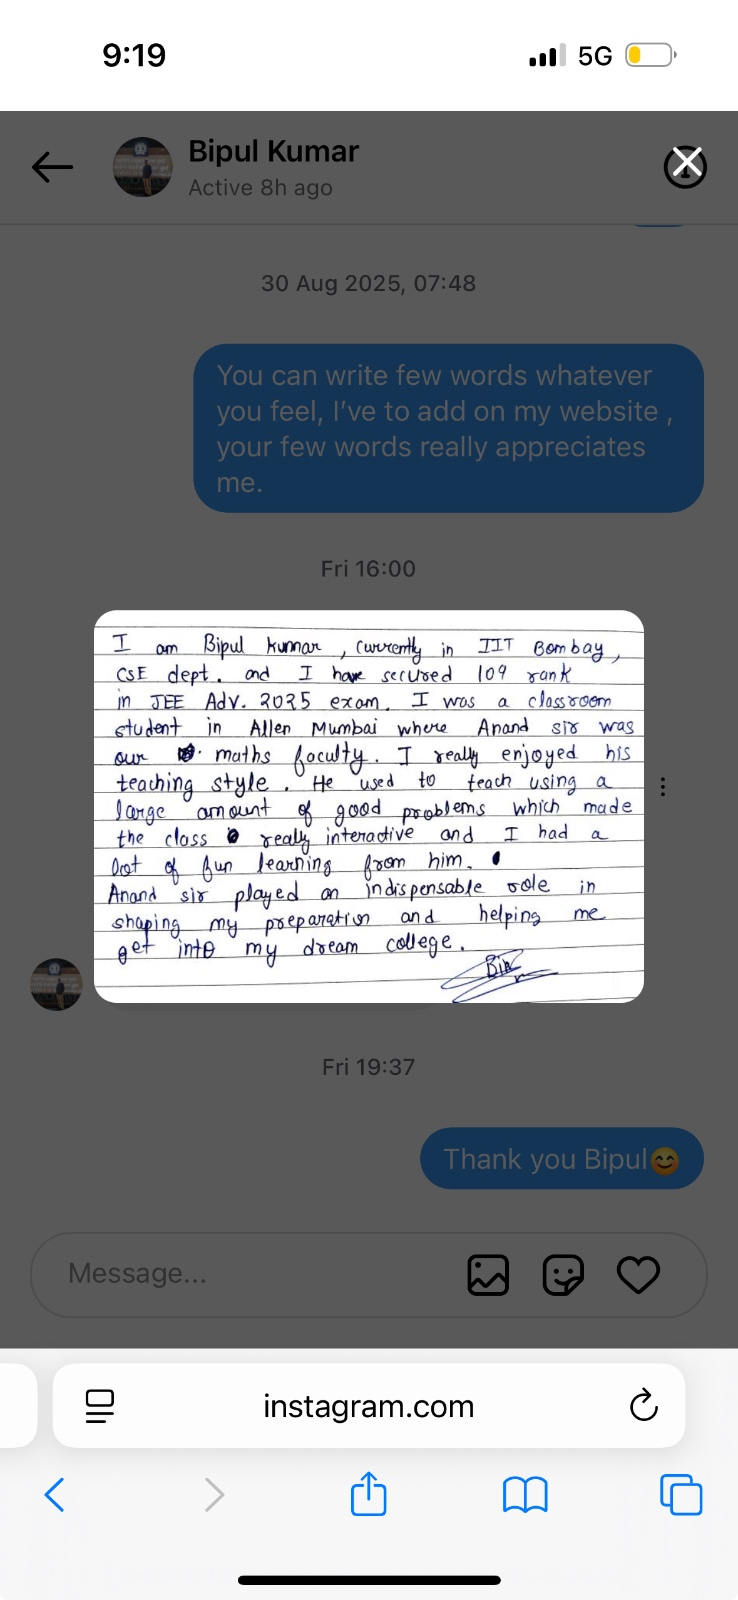 9:19
5G
Bipul Kumar
Active 8h ago
30 Aug 2025, 07:48
You can write few words whatever
you feel, I've to add on my website ,
your few words really appreciates
me.
Fri 16:00
I am Bipul kumar , currently in IIT Bombay,
CSE dept. and I have secured 109 rank
in JEE Adv. 2025 exam. I was a classroom
student in Allen Mumbai where Anand sir was
our maths faculty. I really enjoyed his
teaching style. He used to teach using a
large amount of good problems which made
the class really interactive and I had a
lot of fun learning from him.
Anand sir played an indispensable role in
shaping my preparation and helping me
get into my dream college.
Fri 19:37
Thank you Bipul😊
Message...
instagram.com